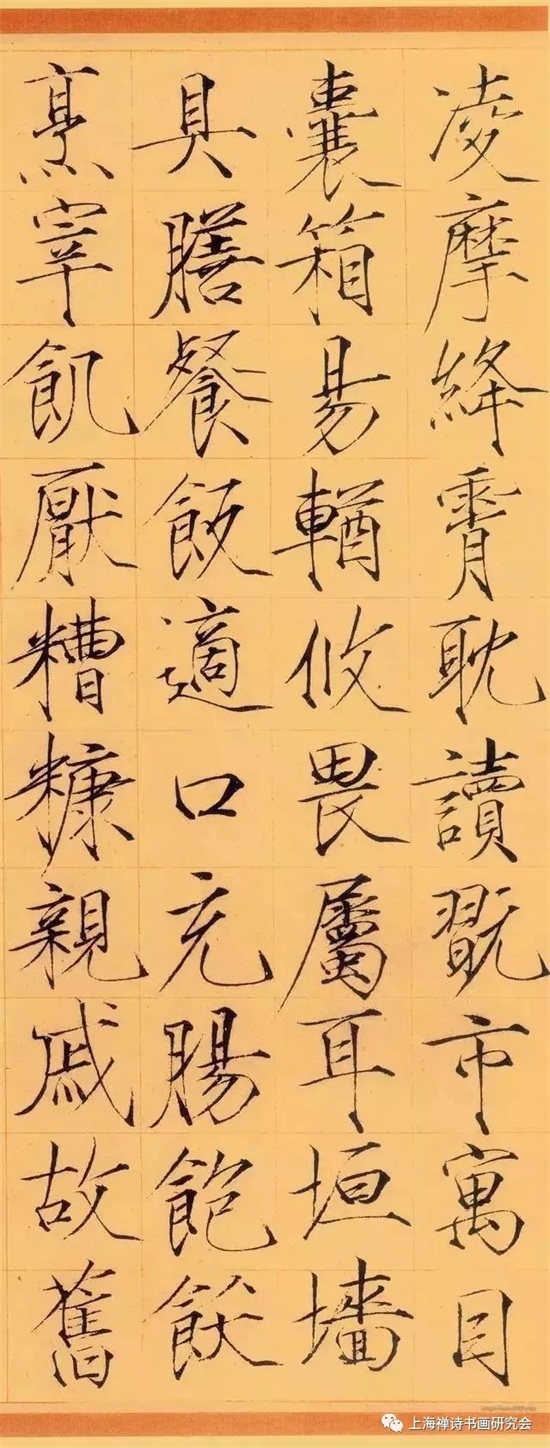 凌摩絳霄耽讀翫市寓目
囊箱易輶攸畏屬耳垣墻
具膳餐飯適口充腸飽飫
烹宰飢厭糟糠親戚故舊
上海禅诗书画研究会